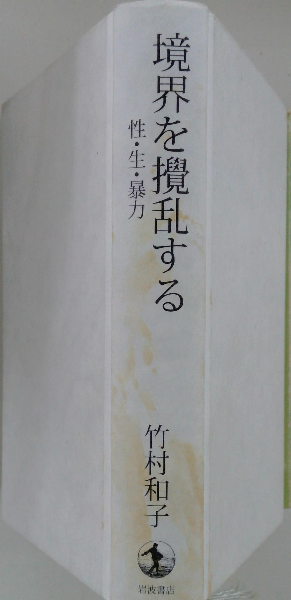 境界を攪乱する
性・生・暴力
竹村和子
岩波書店